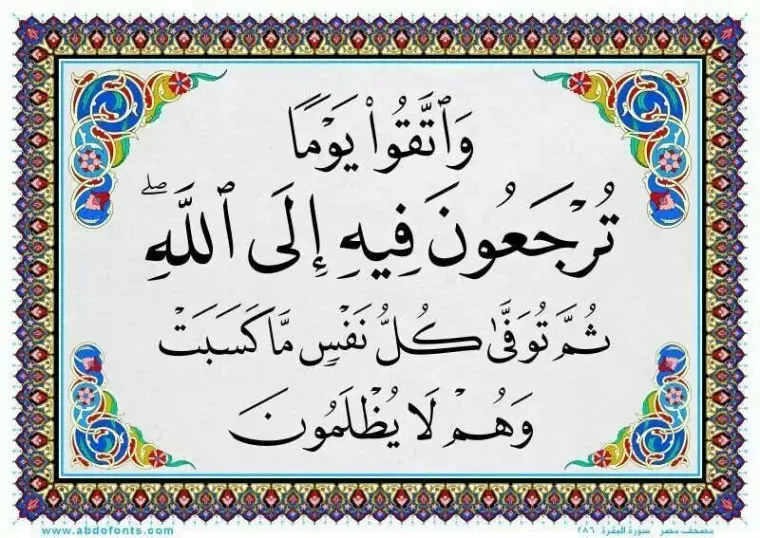 وَٱتَّقُوا۟ يَوْمًا
تُرْجَعُونَ فِيهِ إِلَى ٱللَّهِ ۖ
ثُمَّ تُوَفَّىٰ كُلُّ نَفْسٍ مَّا كَسَبَتْ
وَهُمْ لَا يُظْلَمُونَ
www.abdofonts.com
مصحف مصر سورة البقرة ٢٨٦